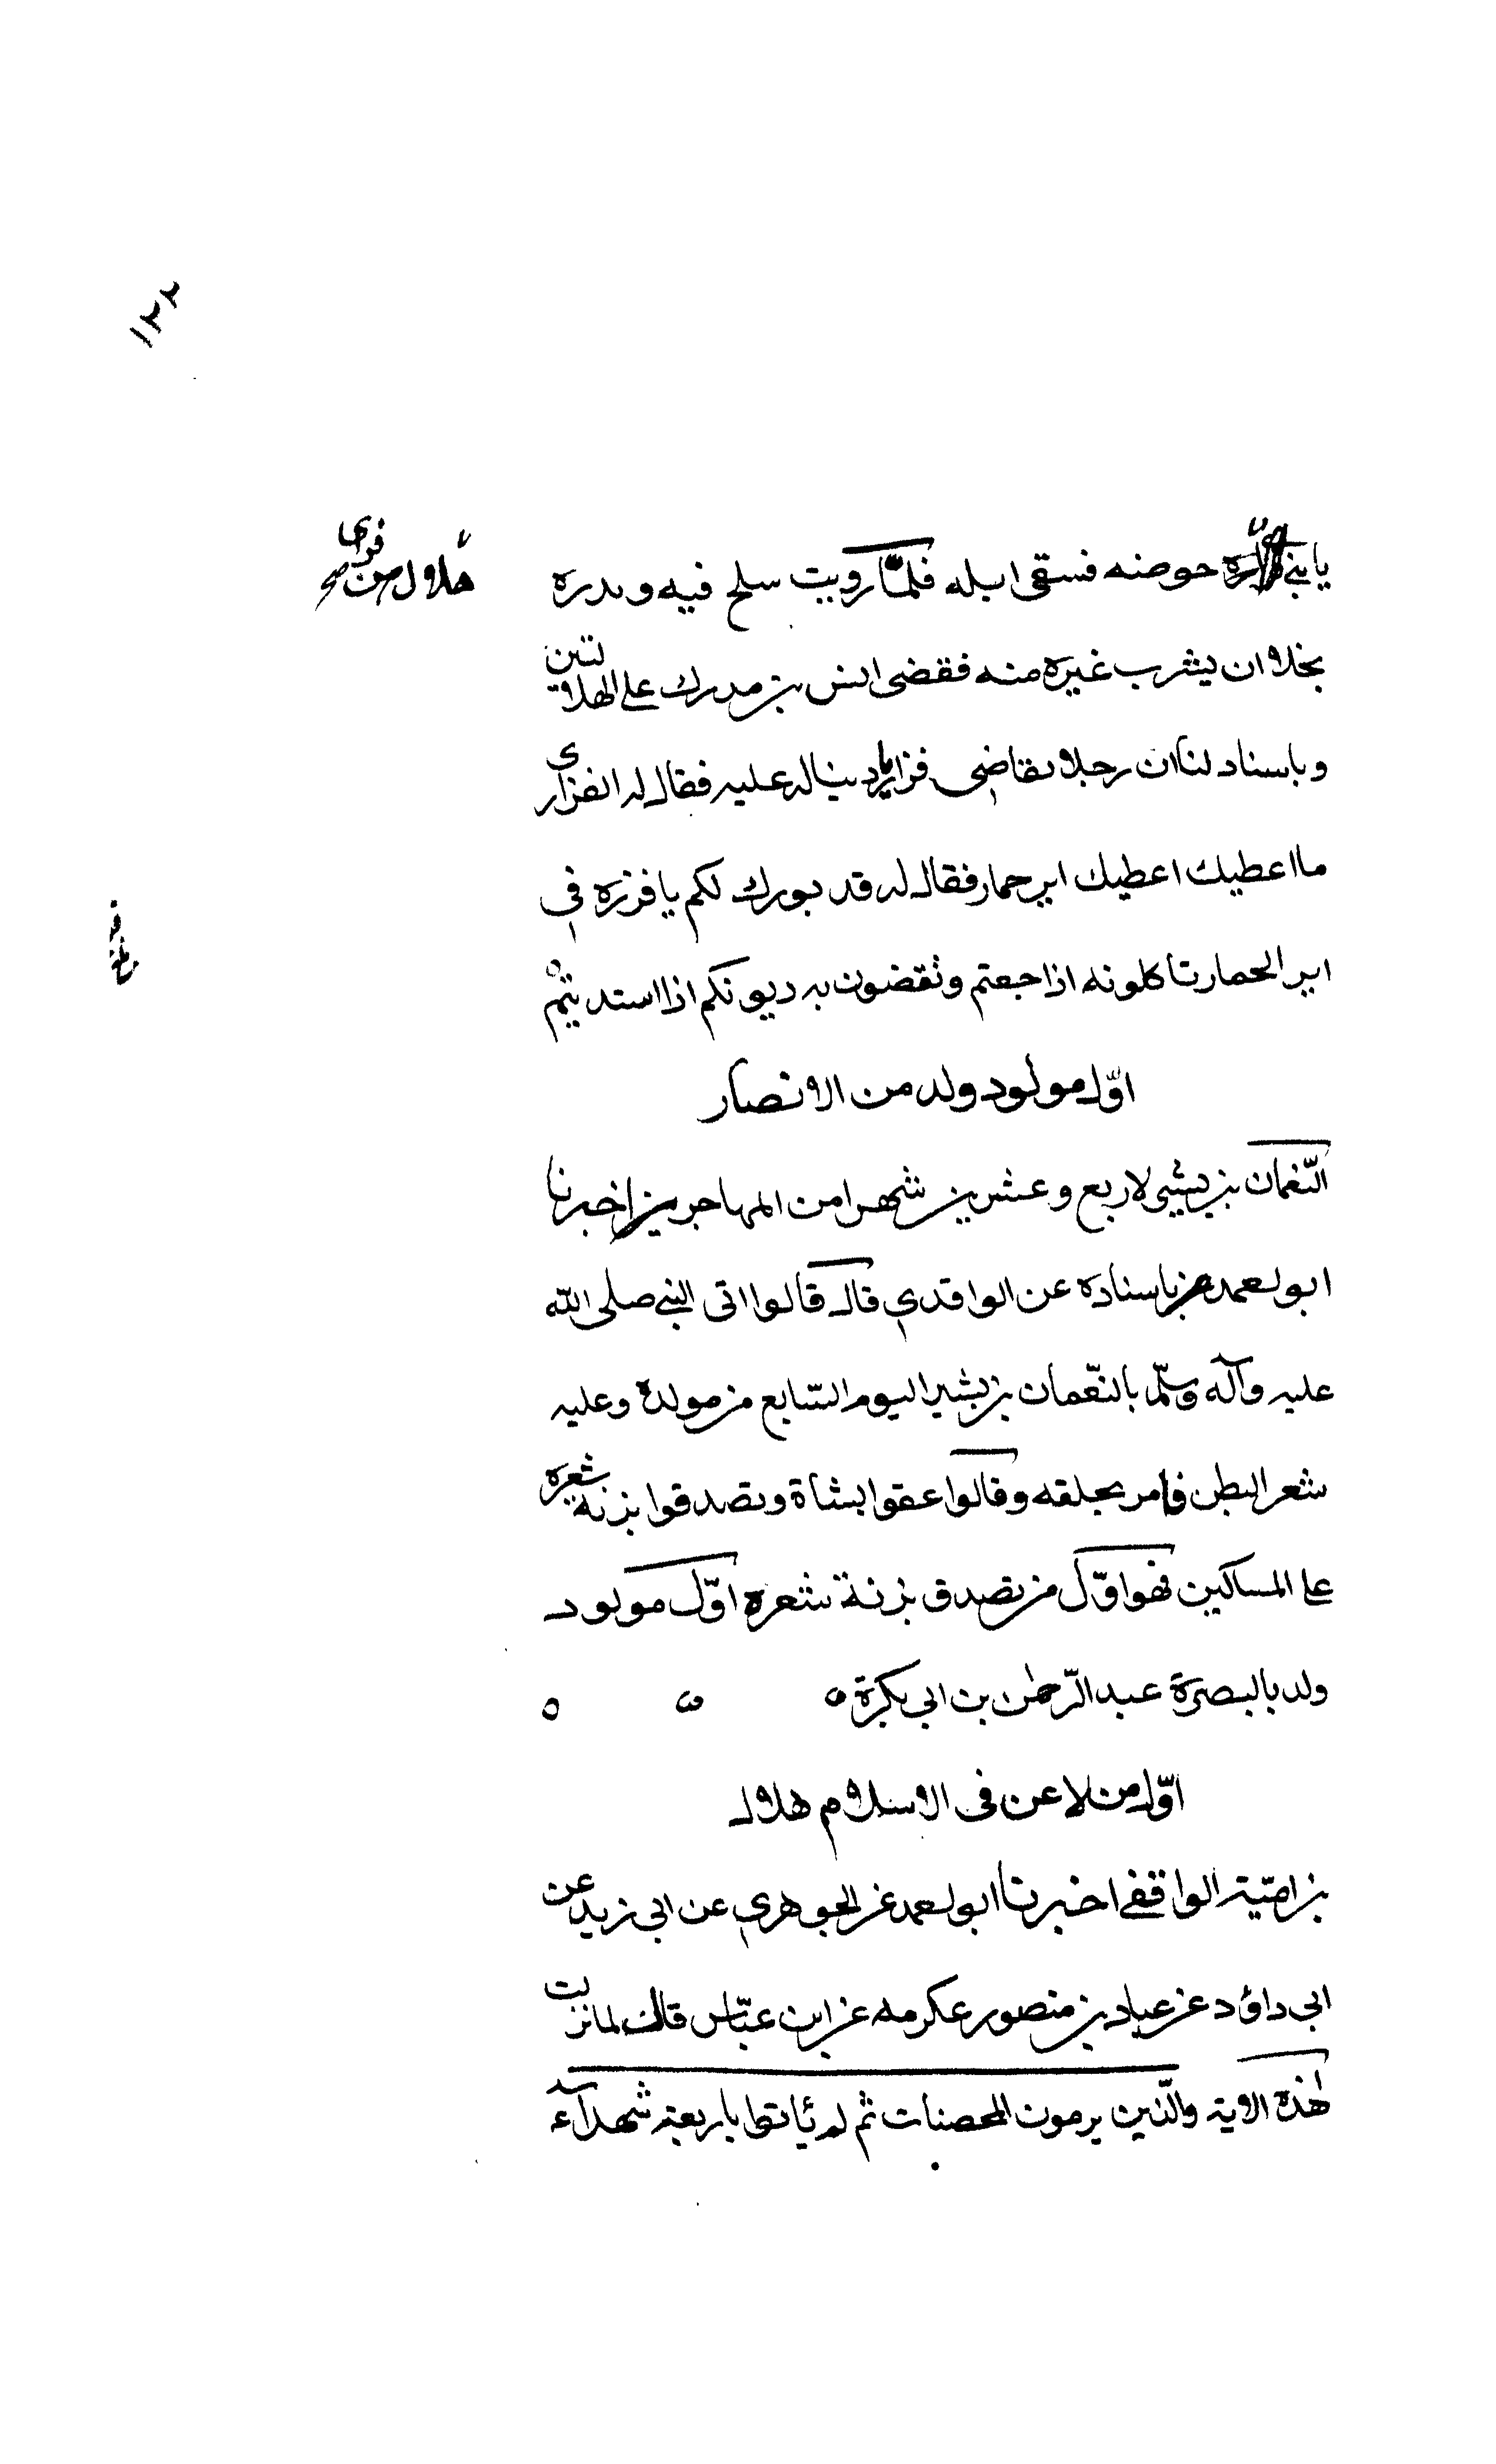 ١٢٢
يا بني حوضه فسقى ابله فلما رويت سلح فيه ومدره
هلال من فزارى صح
بخلا ان يشرب غيره منه فقضى انس بن مدرك على الهلاليين
وباسناد لنا ان رجلا تقاضى فزاريا دينا له عليه فقال له الفزارى
ما اعطيك اعطيك اير حمار فقال له قد بورك لكم يا فزره في
اير الحمار تاكلونه اذا جعتم وتقضون به ديونكم اذا استدينتم
اوّل مولود ولد من الانصار
النّعمان بن بشير لاربع وعشرين شهرا من المهاجرين اخبرنا
ابو احمد باسناده عن الواقدي قال قالوا اتى النبي صلى الله
عليه وآله وسلّم بالنّعمان بن بشير اليوم السّابع من مولده وعليه
شعر البطن فامر بحلقه وقالوا عقوا بشاة وتصدقوا بزنة شعره
على المساكين فهو اوّل من تصدق بزنة شعره اوّل مولود
ولد بالبصرة عبد الرّحمن بن ابي بكرة
اوّل من لاعن فى الاسلام هلال
بن اميّة الواقفي اخبرنا ابو احمد عن الجوهري عن ابي زيد عن
ابي داؤد عن عباد بن منصور عكرمه عن ابن عبّاس قال لما نزلت
هذه الاية والّذين يرمون المحصنات ثم لم يأتوا باربعة شهدآء